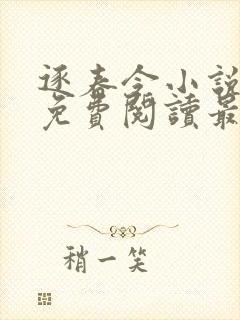 逐春令小說
免費閱讀最
稍一笑